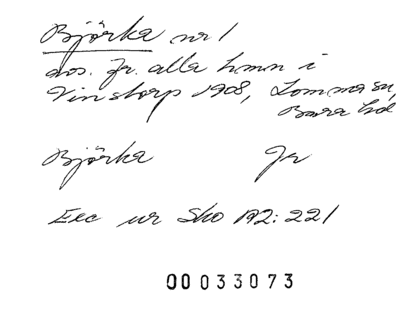 Björka nr 1
avs. fr. alla hmn i
Vinstorp 1908, Lomma sn,
Bara hd
Björka Fr
Exc ur Sko A2:221
00033073